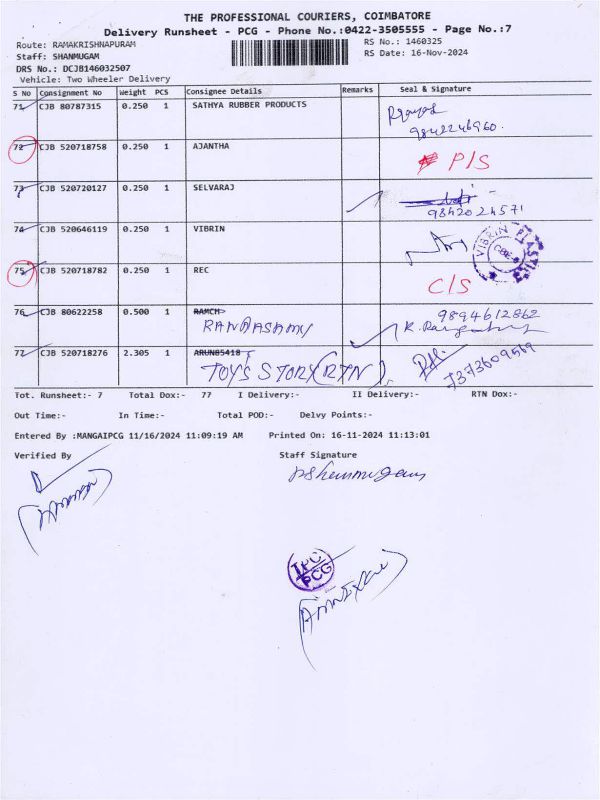 THE PROFESSIONAL COURIERS, COIMBATORE
Delivery Runsheet - PCG - Phone No.:0422-3505555 - Page No.:7
Route: RAMAKRISHNAPURAM
RS No.: 1460325
Staff: SHANMUGAM
RS Date: 16-Nov-2024
DRS No.: DCJB146032507
Vehicle: Two Wheeler Delivery
S No Consignment No Weight PCS Consignee Details Remarks Seal & Signature
71 CJB 80787315 0.250 1 SATHYA RUBBER PRODUCTS
9842246960.
72 CJB 520718758 0.250 1 AJANTHA P/S
73 CJB 520720127 0.250 1 SELVARAJ
9842024571
74 CJB 520646119 0.250 1 VIBRIN VIBRIN PLASTICS CBE-6
75 CJB 520718782 0.250 1 REC C/S
76 CJB 80622258 0.500 1 RAMCH 9894612862
RANDASAMY
77 CJB 520718276 2.305 1 ARUN85418
TOY'S STORY (RTN). 7373609569
Tot. Runsheet:- 7 Total Dox:- 77 I Delivery:- II Delivery:- RTN Dox:-
Out Time:- In Time:- Total POD:- Delvy Points:-
Entered By :MANGAIPCG 11/16/2024 11:09:19 AM Printed On: 16-11-2024 11:13:01
Verified By Staff Signature
TPC
PCG